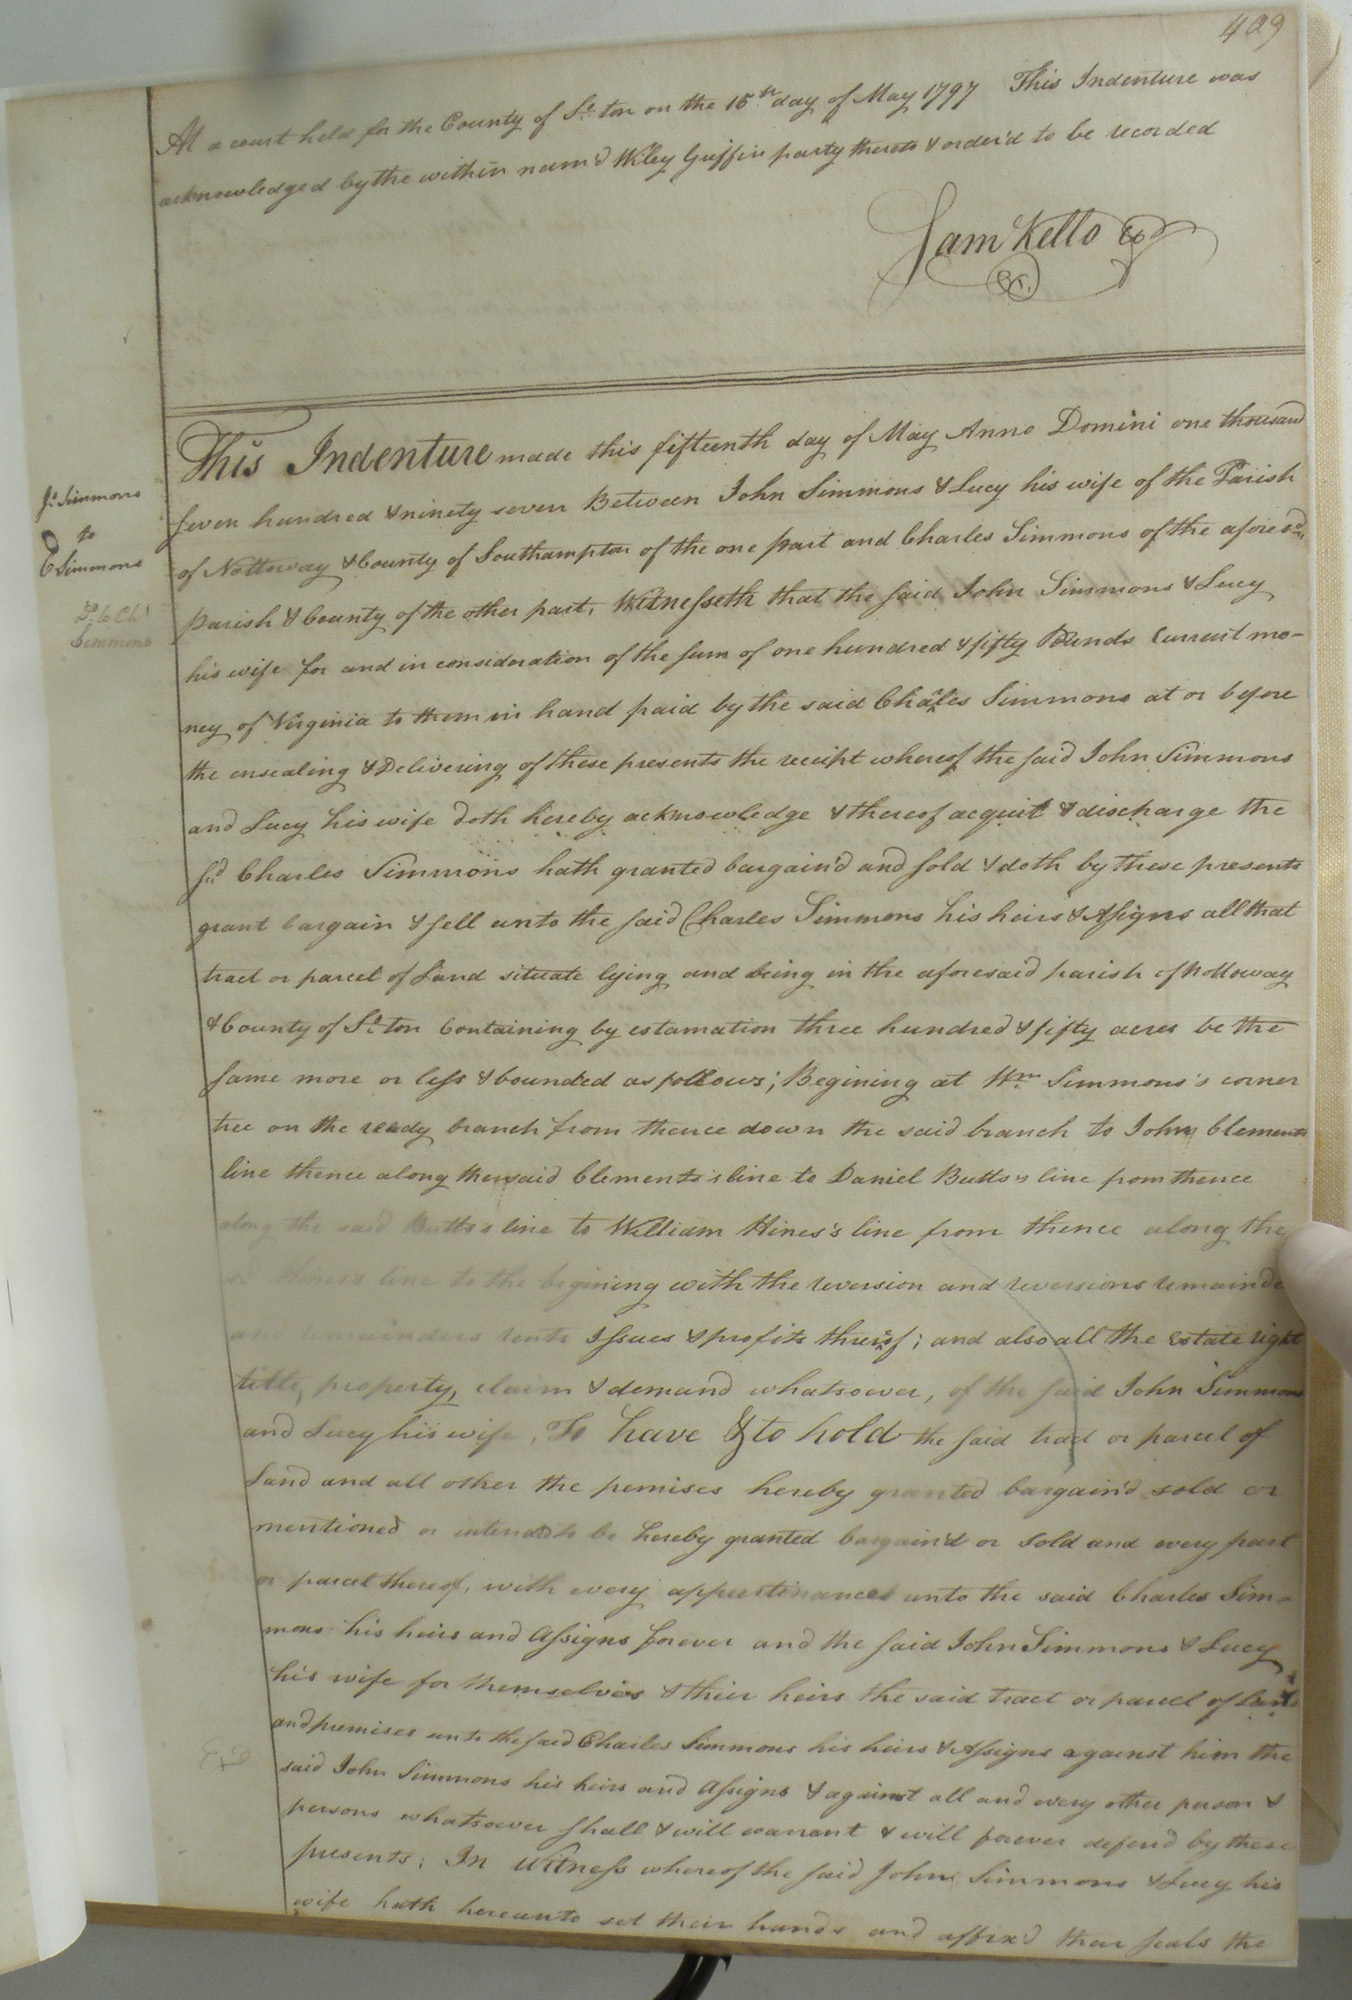 409
At a court held for the County of S°. ton on the 15th day of May 1797 This Indenture was
acknowledged by the within nam'd Wiley Griffin party thereto & order'd to be recorded
Sam Kello
This Indenture made this fifteenth day of May Anno Domini one thousand
Seven hundred & ninety seven Between John Simmons & Lucy his wife of the Parish
of Nottoway & County of Southampton of the one part and Charles Simmons of the afores'd
parish & County of the other part, Witnesseth that the said John Simmons & Lucy
his wife for and in consideration of the sum of one hundred & fifty Pounds Current mo-
ney of Virginia to them in hand paid by the said Charles Simmons at or before
the ensealing & Delivering of these presents the receipt whereof the said John Simmons
and Lucy his wife doth hereby acknowledge & thereof acquit & discharge the
sd Charles Simmons hath granted bargain'd and sold & doth by these presents
grant bargain & sell unto the said Charles Simmons his heirs & Assigns all that
tract or parcel of Land situate lying and being in the aforesaid parish of Nottoway
& County of S°. ton Containing by estamation three hundred & fifty acres be the
same more or less & bounded as follows; Begining at Wm. Simmons's corner
tree on the ready branch from thence down the said branch to John Clements
line thence along the said Clements's line to Daniel Butts's line from thence
along the said Butts's line to William Hines's line from thence along the
sd Hines's line to the begining with the reversion and reversions remainde
and remainders rents issues & profits thereof; and also all the estate right
title, property, claim & demand whatsoever, of the said John Simmons
and Lucy his wife, To have & to hold the said tract or parcel of
Land and all other the pemises hereby granted bargain'd sold or
mentioned or intended to be hereby granted bargain'd or sold and every part
or parcel thereof, with every appurtinances unto the said Charles Sim-
mons his heirs and Assigns forever and the said John Simmons & Lucy
his wife for themselves & their heirs the said tract or parcel of Land
and premises unto the said Charles Simmons his heirs & Assigns against him the
said John Simmons his heirs and Assigns & against all and every other person &
persons whatsoever shall & will warrant & will forever defend by these
presents; In Witness whereof the said John Simmons & Lucy his
wife hath hereunto set their hands and affix'd their seals the
Jo. Simmons
to
C Simmons
Do. to Chs
Simmons